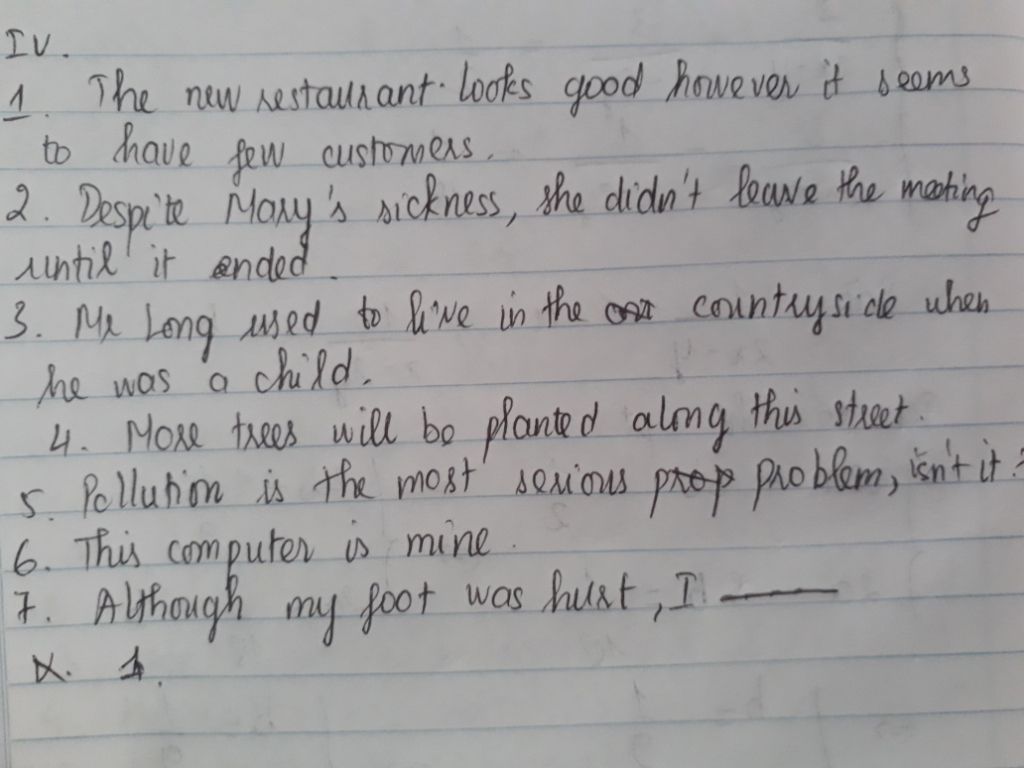 IV.
1. The new restaurant looks good however it seems
to have few customers.
2. Despite Mary's sickness, she didn't leave the meeting
until it ended.
3. Mr Long used to live in the countryside when
he was a child.
4. More trees will be planted along this street.
5. Pollution is the most serious prop problem, isn't it?
6. This computer is mine.
7. Although my foot was hurt, I ——
X. 1.